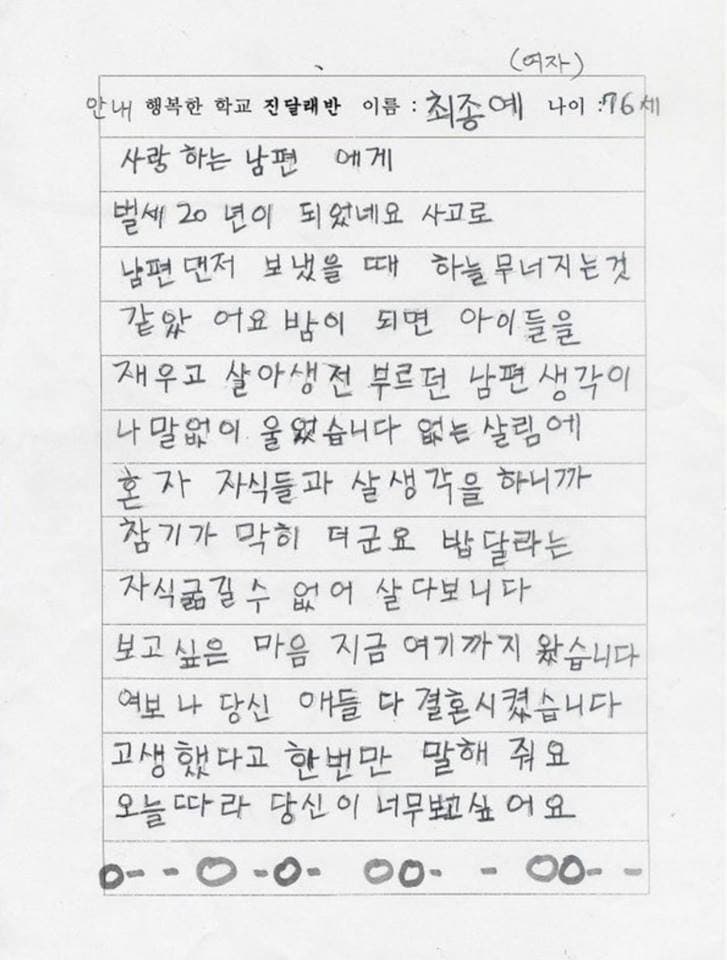 (여자)
안내 행복한 학교 진달래반 이름 : 최종예 나이 : 76세
사랑 하는 남편 에게
벌세 20 년이 되었네요 사고로
남편 먼저 보냈을 때 하늘 무너지는것
같았 어요 밤이 되면 아이들을
재우고 살아생전 부르던 남편 생각이
나 말없이 울었습니다 없는 살림에
혼자 자식들과 살생각을 하니까
참기가 막히 더군요 밥달라는
자식굶길수 없어 살다보니다
보고싶은 마음 지금 여기까지 왔습니다
여보 나 당신 애들 다 결혼시켰습니다
고생했다고 한번만 말해 줘요
오늘따라 당신이 너무보고싶어요